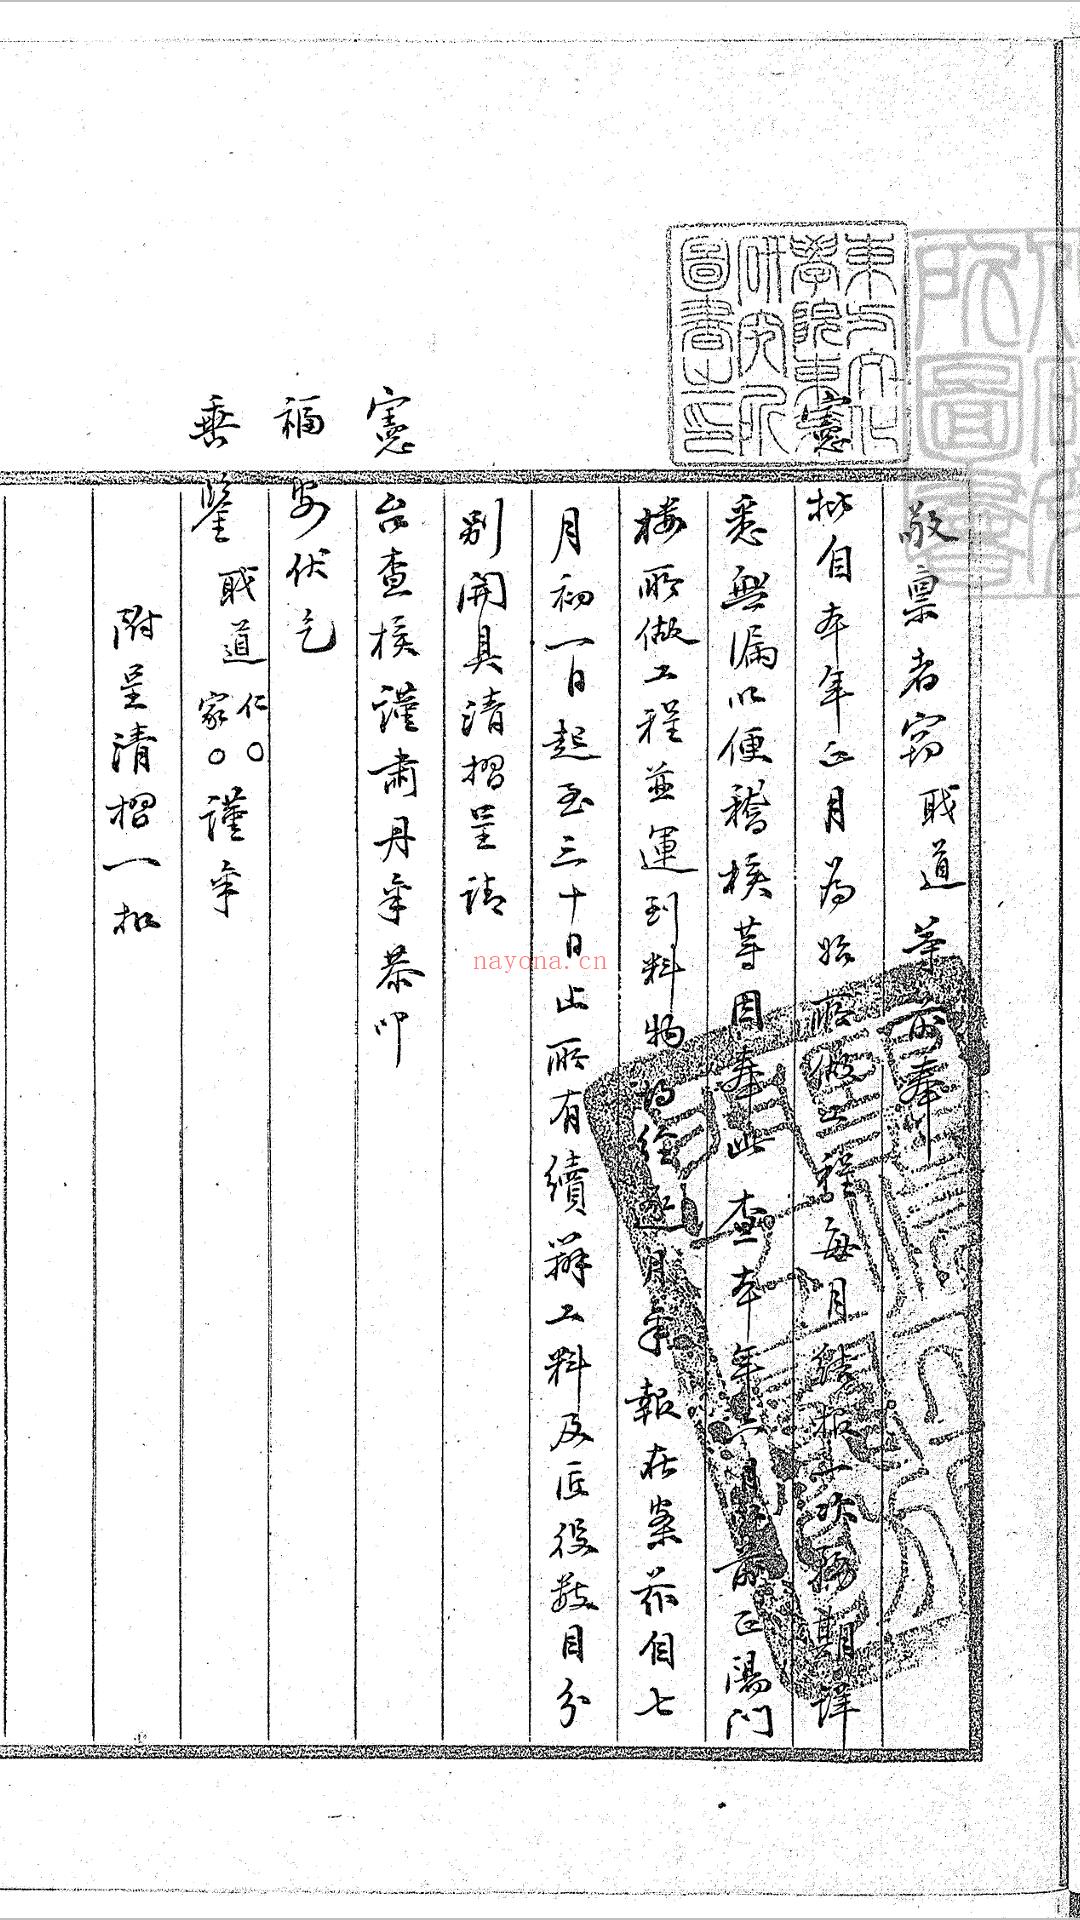 敬稟者竊職道等前奉
憲
批自本年正月為始所做工程每月結報一次務期詳
悉無漏以便稽核等因奉此查本年六月以前正陽門
樓所做工程並運到料物均經逐月稟報在案茲自七
月初一日起至三十日止所有續辦工料及匠役數目分
別開具清摺呈請
憲
台查核謹肅丹稟恭叩
福
安伏乞
垂
鑒職道仁○家○謹稟
附呈清摺一扣
東方文化
學院東京
研究所
圖書之印
nayona.cn